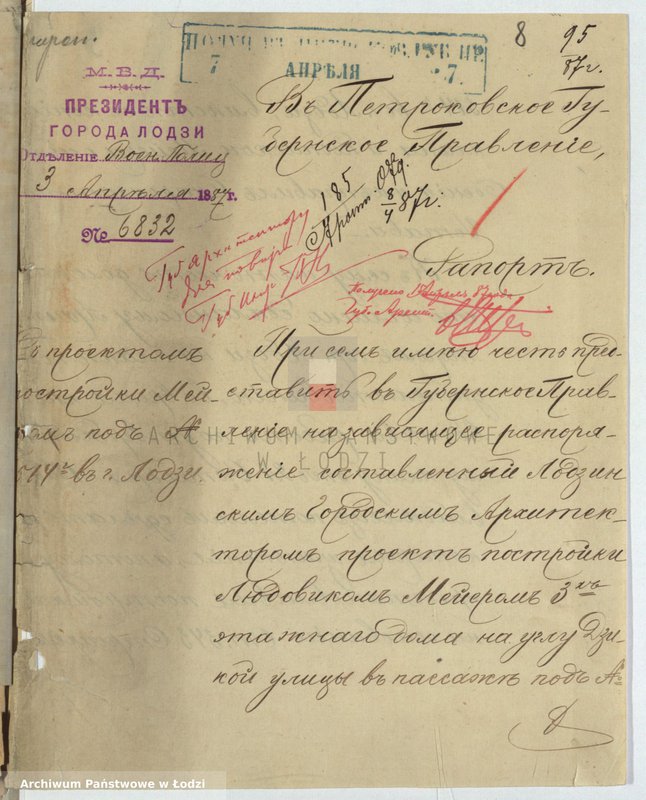 8 95
87г.
АПРѢЛЯ
7 7
М.В.Д.
ПРЕЗИДЕНТЪ
ГОРОДА ЛОДЗИ
Отдѣленіе Воен. Полиц
3 Апрѣля 1887г.
№ 6832
Въ Петроковское Гу-
бернское Правленіе,
185
8/4 87г.
Губ Архитектору
для повѣр
Губ Инж
Рапортъ.
Получено Апрѣля 87 года
Губ. Архит.
Съ проектомъ
постройки Мей-
ромъ подъ №
514ъ въ г. Лодзи.
При семъ имѣю честь пред-
ставить въ Губернское Прав-
леніе на зависящее распоря-
женіе составленный Лодзин
скимъ Городскимъ Архитек-
торомъ проектъ постройки
Людовикомъ Мейеромъ 3хъ
этажнаго дома на углу Дзи-
кой улицы въ пассажѣ подъ №
ARCHIWUM PAŃSTWOWE
W ŁODZI
Archiwum Państwowe w Łodzi